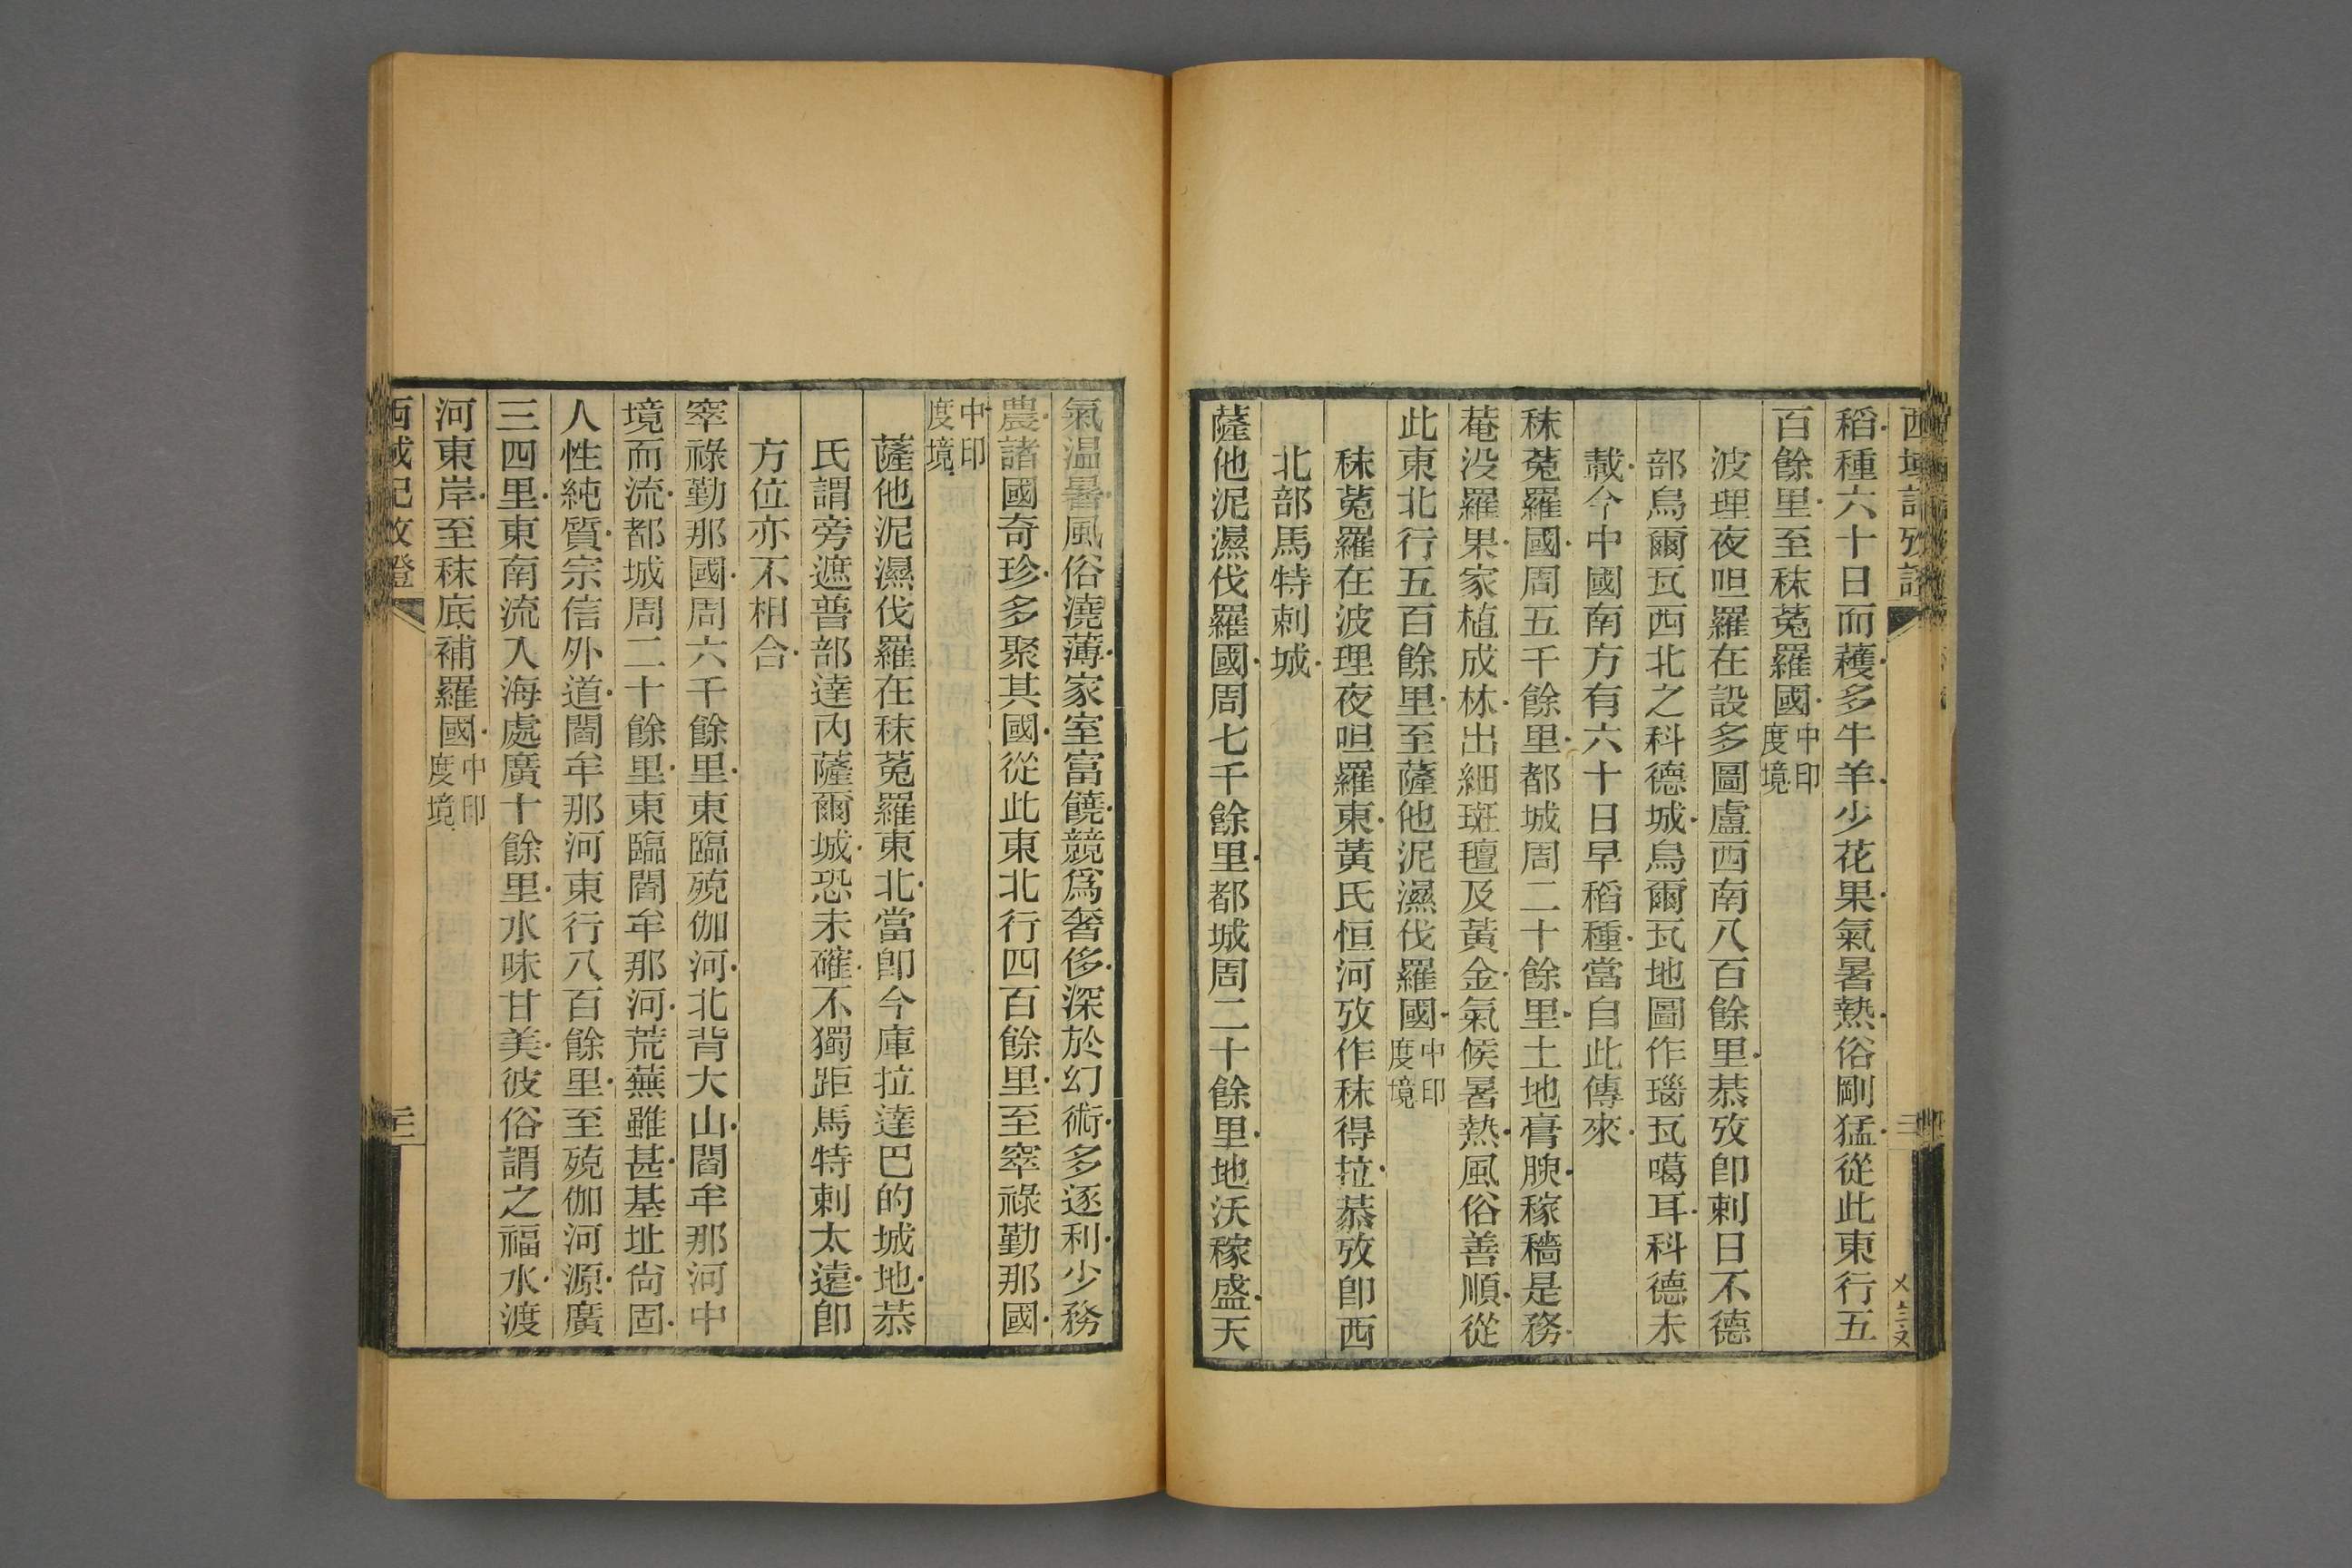 西域記攷證
稻種六十日而穫多牛羊少花果氣暑熱俗剛猛從此東行五
百餘里至秣菟羅國中印度境
波理夜呾羅在設多圖盧西南八百餘里恭攷卽剌日不德
部烏爾瓦西北之科德城烏爾瓦地圖作瑙瓦噶耳科德未
載今中國南方有六十日早稻種當自此傳來
秣菟羅國周五千餘里都城周二十餘里土地膏腴稼穡是務
菴没羅果家植成林出細斑㲲及黃金氣候暑熱風俗善順從
此東北行五百餘里至薩他泥濕伐羅國中印度境
秣菟羅在波理夜呾羅東黃氏恒河攷作秣得拉恭攷卽西
北部馬特剌城
薩他泥濕伐羅國周七千餘里都城周二十餘里地沃稼盛天
氣温暑風俗澆薄家室富饒競爲奢侈深於幻術多逐利少務
農諸國奇珍多聚其國從此東北行四百餘里至窣祿勤那國
中印度境
薩他泥濕伐羅在秣菟羅東北當卽今庫拉達巴的城地恭
氏謂旁遮普部達內薩爾城恐未確不獨距馬特剌太遠卽
方位亦不相合
窣祿勤那國周六千餘里東臨殑伽河北背大山閻牟那河中
境而流都城周二十餘里東臨閻牟那河荒蕪雖甚基址尙固
人性純質宗信外道閻牟那河東行八百餘里至殑伽河源廣
三四里東南流入海處廣十餘里水味甘美彼俗謂之福水渡
河東岸至秣底補羅國中印度境
西域記攷證